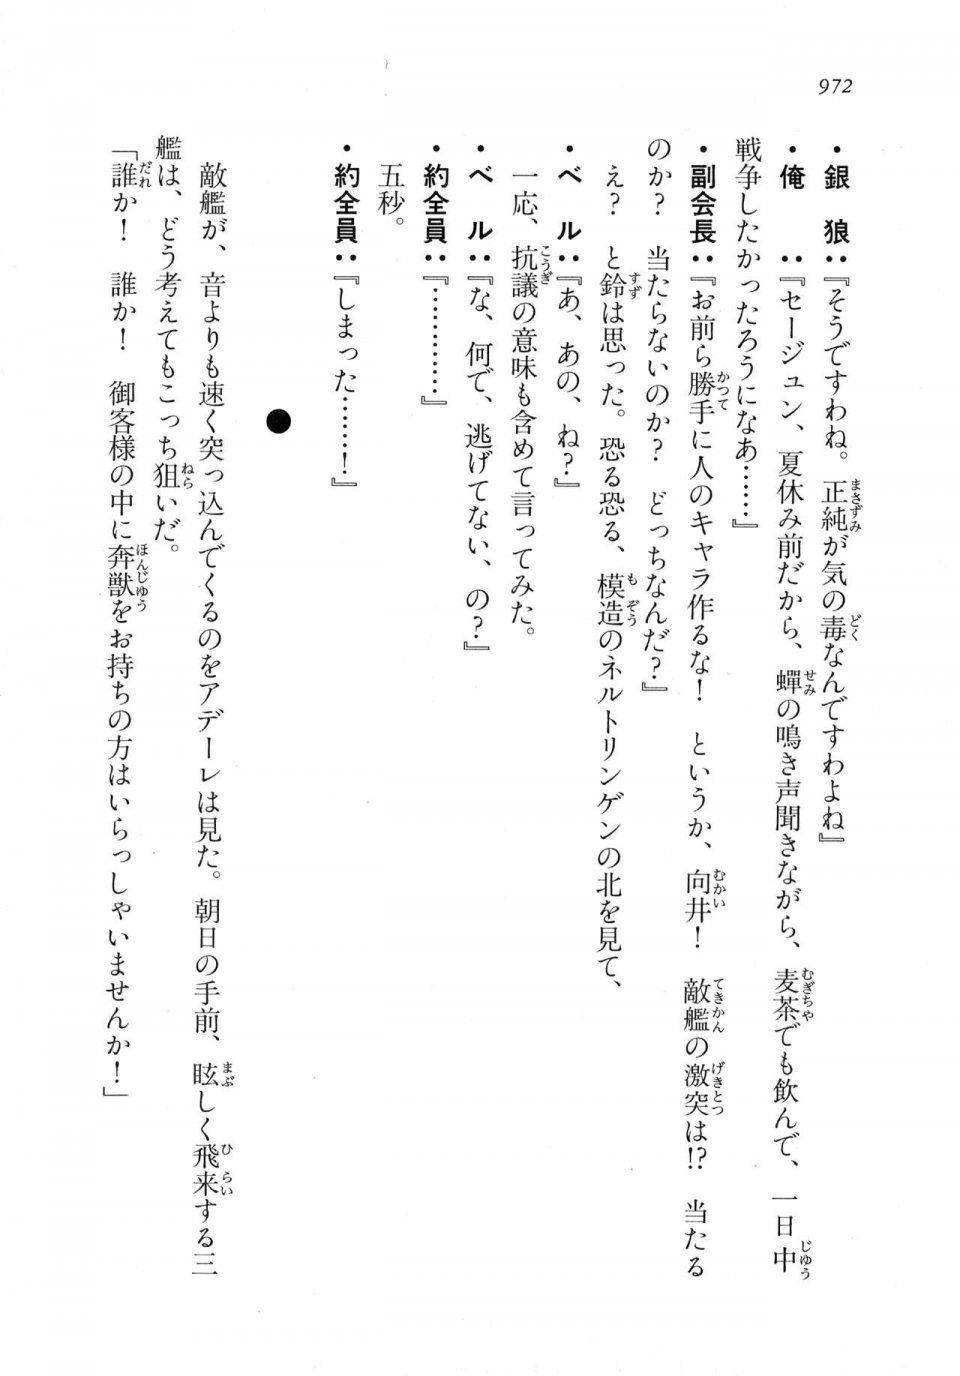 972
・銀　狼：『そうですわね。正純が気の毒なんですわよね』
・俺　　：『セージュン、夏休み前だから、蟬の鳴き声聞きながら、麦茶でも飲んで、一日中
戦争したかったろうになあ……』
・副会長：『お前ら勝手に人のキャラ作るな！　というか、向井！　敵艦の激突は!?　当たる
のか？　当たらないのか？　どっちなんだ？』
　え？　と鈴は思った。恐る恐る、模造のネルトリンゲンの北を見て、
・ベ　ル：『あ、あの、ね？』
　一応、抗議の意味も含めて言ってみた。
・ベ　ル：『な、何で、逃げてない、の？』
・約全員：『…………』
　五秒。
・約全員：『しまった……！』
●
　敵艦が、音よりも速く突っ込んでくるのをアデーレは見た。朝日の手前、眩しく飛来する三
艦は、どう考えてもこっち狙いだ。
「誰か！　誰か！　御客様の中に奔獣をお持ちの方はいらっしゃいませんか！」